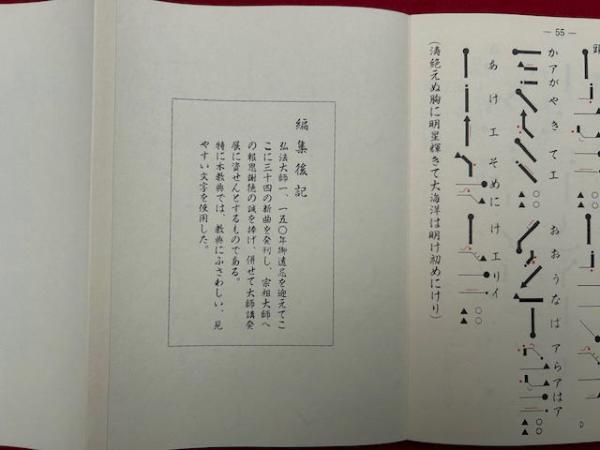 — 55 —
かアがやきてエ
おおうなばアらアはア
あけエそめにけエりイ
(濤絶えぬ胸に明星輝きて大海洋は明け初めにけり)
編集後記
弘法大師一、一五〇年御遠忌を迎えてこ
こに三十四の新曲を発刊し、宗祖大師へ
の報恩謝徳の誠を捧げ、併せて大師講発
展に資せんとするものである。
特に本教典では、教典にふさわしい、見
やすい文字を使用した。